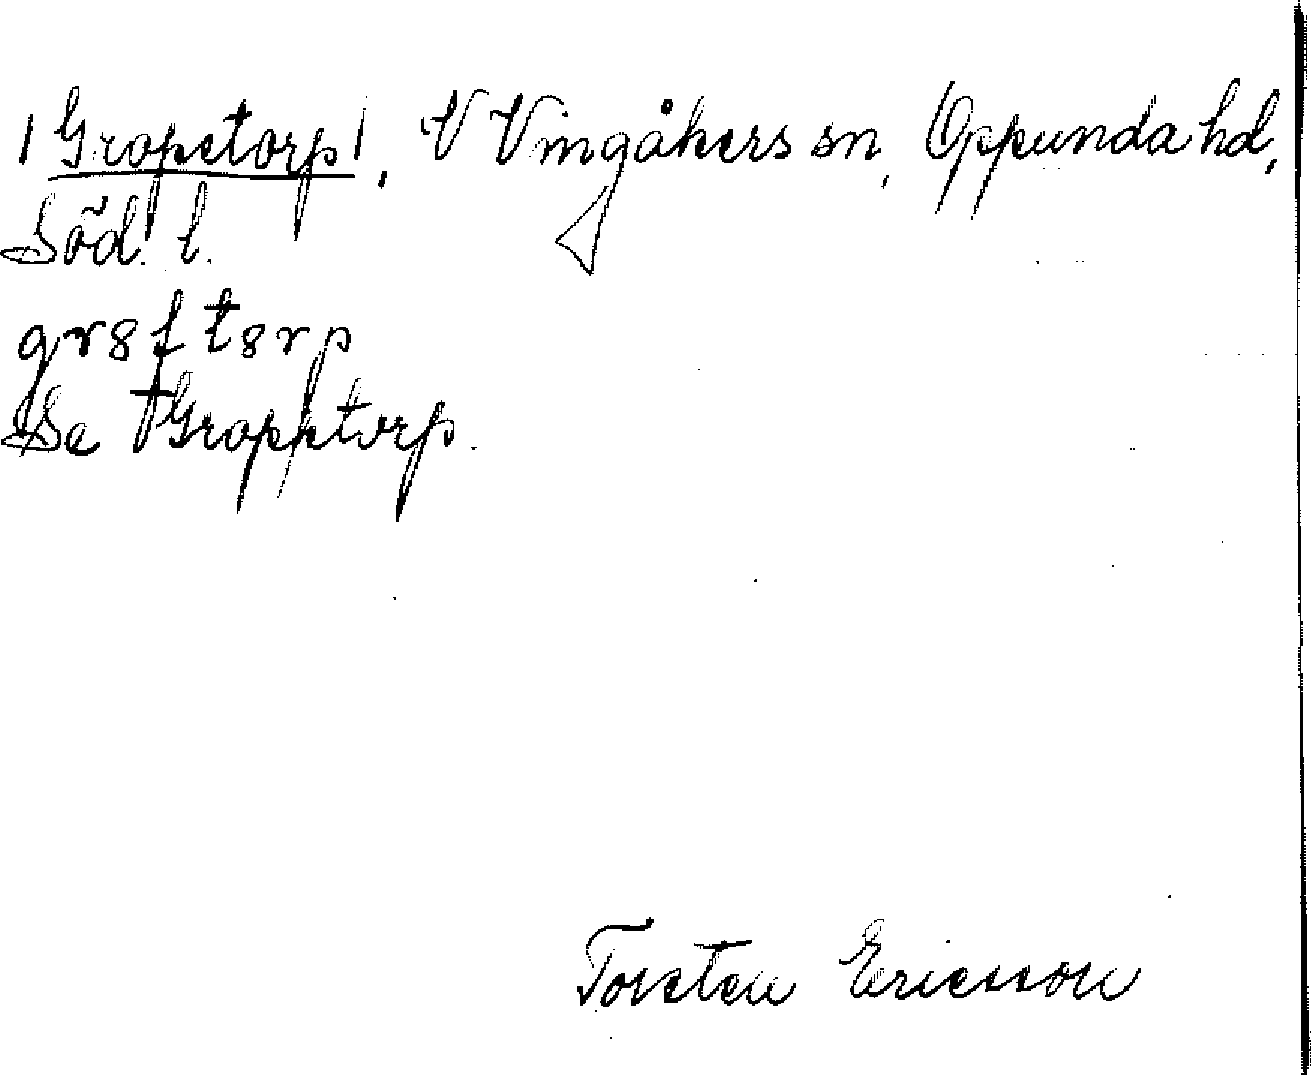 |Gropetorp|, V Vingåkers sn, Oppunda hd,
Söd. l.
Se †Gropptorp.
Torsten Ericsson